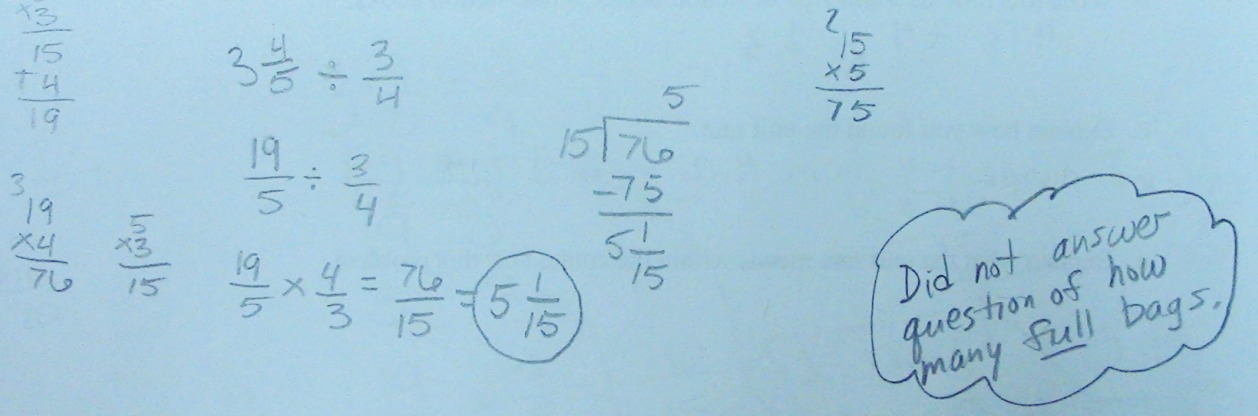 ×3
15
+4
19
3 4/5 ÷ 3/4
19/5 ÷ 3/4
19/5 × 4/3 = 76/15 = 5 1/15
3
19
×4
76
5
×3
15
5
15)76
-75
5 1/15
2
15
×5
75
Did not answer
question of how
many full bags.